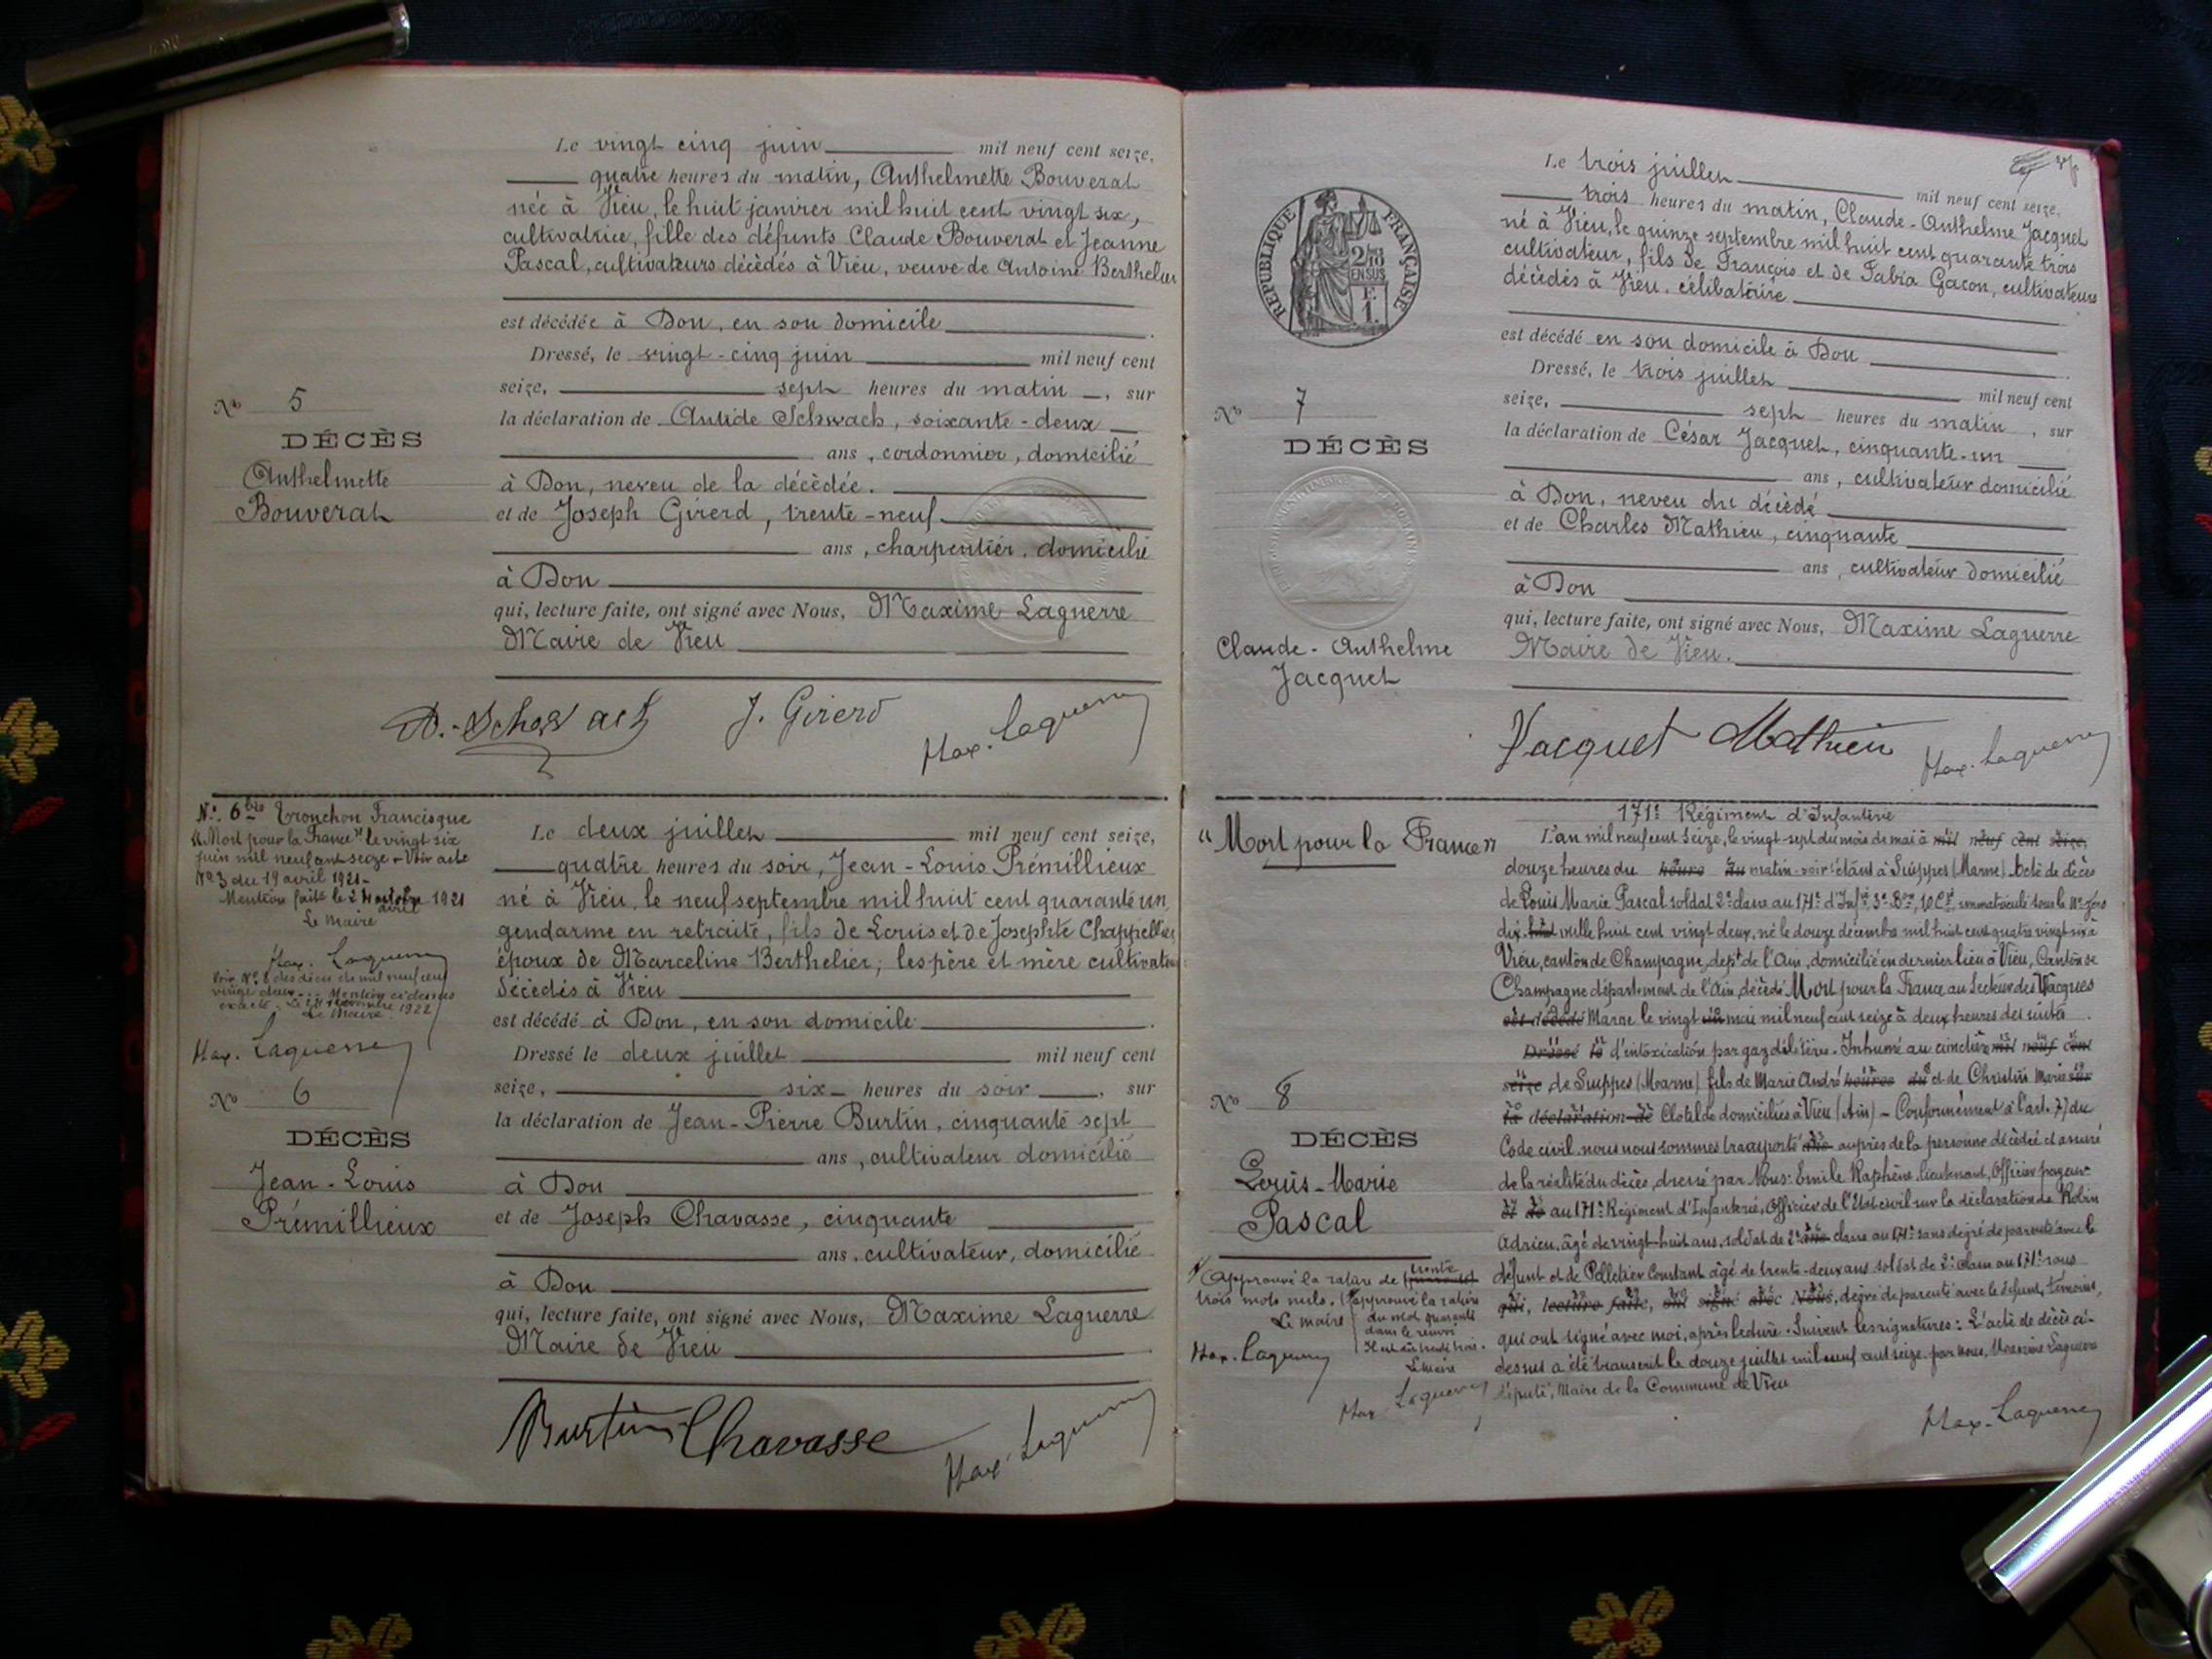 Le vingt cinq juin mil neuf cent seize,
quatre heures du matin, Anthelmette Bouverat
née à Vieu, le huit janvier mil huit cent vingt six,
cultivatrice, fille des défunts Claude Bouverat et Jeanne
Pascal, cultivateurs décèdés à Vieu, veuve de Antoine Berthelier
est décédée à Don, en son domicile
Dressé, le vingt-cinq juin mil neuf cent
seize, sept heures du matin, sur
la déclaration de Antide Schwach, soixante-deux
ans, cordonnier, domicilié
à Don, neveu de la décèdée.
et de Joseph Girerd, trente-neuf
ans, charpentier, domicilié
à Don
qui, lecture faite, ont signé avec Nous, Maxime Laguerre
Maire de Vieu
No 5
DÉCÈS
Anthelmette
Bouverat
A. Schwach J. Girerd Max. Laguerre
No. 6 bis Tronchon Francisque
"Mort pour la France" le vingt six
juin mil neuf cent seize - Voir acte
No 3 du 19 avril 1921-
Mention faite le 2 avril 1921
Le Maire
Max. Laguerre
Voir No 6 des décès de mil neuf cent
vingt deux... Mention ci-dessus
exacte. Le novembre 1922
Le Maire.
Max. Laguerre
No 6
DÉCÈS
Jean-Louis
Prémillieux
Le deux juillet mil neuf cent seize,
quatre heures du soir, Jean-Louis Prémillieux
né à Vieu, le neuf septembre mil huit cent quarante un,
gendarme en retraite, fils de Louis et de Josephte Chappellier
époux de Marceline Berthelier; les père et mère cultivateurs
décèdés à Vieu
est décédé à Don, en son domicile
Dressé le deux juillet mil neuf cent
seize, six heures du soir, sur
la déclaration de Jean-Pierre Burtin, cinquante sept
ans, cultivateur domicilié
à Don
et de Joseph Chavasse, cinquante
ans, cultivateur, domicilié
à Don
qui, lecture faite, ont signé avec Nous, Maxime Laguerre
Maire de Vieu
Burtin Chavasse Max. Laguerre
RÉPUBLIQUE FRANÇAISE
2/10
EN SUS
F.
1.
Le trois juillet mil neuf cent seize,
trois heures du matin, Claude-Anthelme Jacquet
né à Vieu, le quinze septembre mil huit cent quarante trois
cultivateur, fils de François et de Fabia Gacon, cultivateurs
décèdés à Vieu, célibataire
est décédé en son domicile à Don
Dressé, le trois juillet mil neuf cent
seize, sept heures du matin, sur
la déclaration de César Jacquet, cinquante-un
ans, cultivateur domicilié
à Don, neveu du décèdé
et de Charles Mathieu, cinquante
ans, cultivateur domicilié
à Don
qui, lecture faite, ont signé avec Nous, Maxime Laguerre
Maire de Vieu.
No 7
DÉCÈS
Claude-Anthelme
Jacquet
Jacquet Mathieu Max. Laguerre
"Mort pour la France"
No 8
DÉCÈS
Louis-Marie
Pascal
Approuvé la rature de trente
trois mots nuls.
Le maire
Max. Laguerre
approuvé la rature
du mot quarante
dans le renvoi
Le Maire
Max. Laguerre
171e Régiment d'Infanterie
L'an mil neuf cent seize, le vingt-sept du mois de mai à mil neuf cent seize,
douze heures du heures du matin-soir étant à Suippes (Marne). Acte de décès
de Louis Marie Pascal soldat 2e classe au 171e d'Infie, 3e Bon, 10 Cie, immatriculé sous le No
dix huit mille huit cent vingt deux, né le douze décembre mil huit cent quatre vingt six à
Vieu, canton de Champagne, dept de l'Ain, domicilié en dernier lieu à Vieu, Canton de
Champagne département de l'Ain, décédé Mort pour la France au Secteur des Wacques
est décédé Marne le vingt un mai mil neuf cent seize à deux heures des suites
Dressé le d'intoxication par gaz délétère. Inhumé au cimetière mil neuf cent
seize de Suippes (Marne) fils de Marie André heures du et de Christin Marie sur
la déclaration de Clotilde domiciliés à Vieu (Ain) - Conformément à l'art. 77 du
Code civil nous nous sommes transporté ans auprès de la personne décèdée et assuré
de la réalité du décès, dressé par Nous: Emile Raphène, lieutenant, Officier payeur
et de au 171e Régiment d'Infanterie, Officier de l'Etat civil sur la déclaration de Robin
Adrien, âgé de vingt-huit ans, soldat de 2e ans classe au 171e sans degré de parenté avec le
défunt et de Pelletier Constant âgé de trente-deux ans soldat de 2e classe au 171e sans
qui, lecture faite, ont signé avec Nous, degré de parenté avec le défunt, témoins,
qui ont signé avec moi, après lecture. Suivent les signatures: L'acte de décès ci-
dessus a été transcrit le douze juillet mil neuf cent seize par nous, Maxime Laguerre
député, Maire de la Commune de Vieu
Max. Laguerre